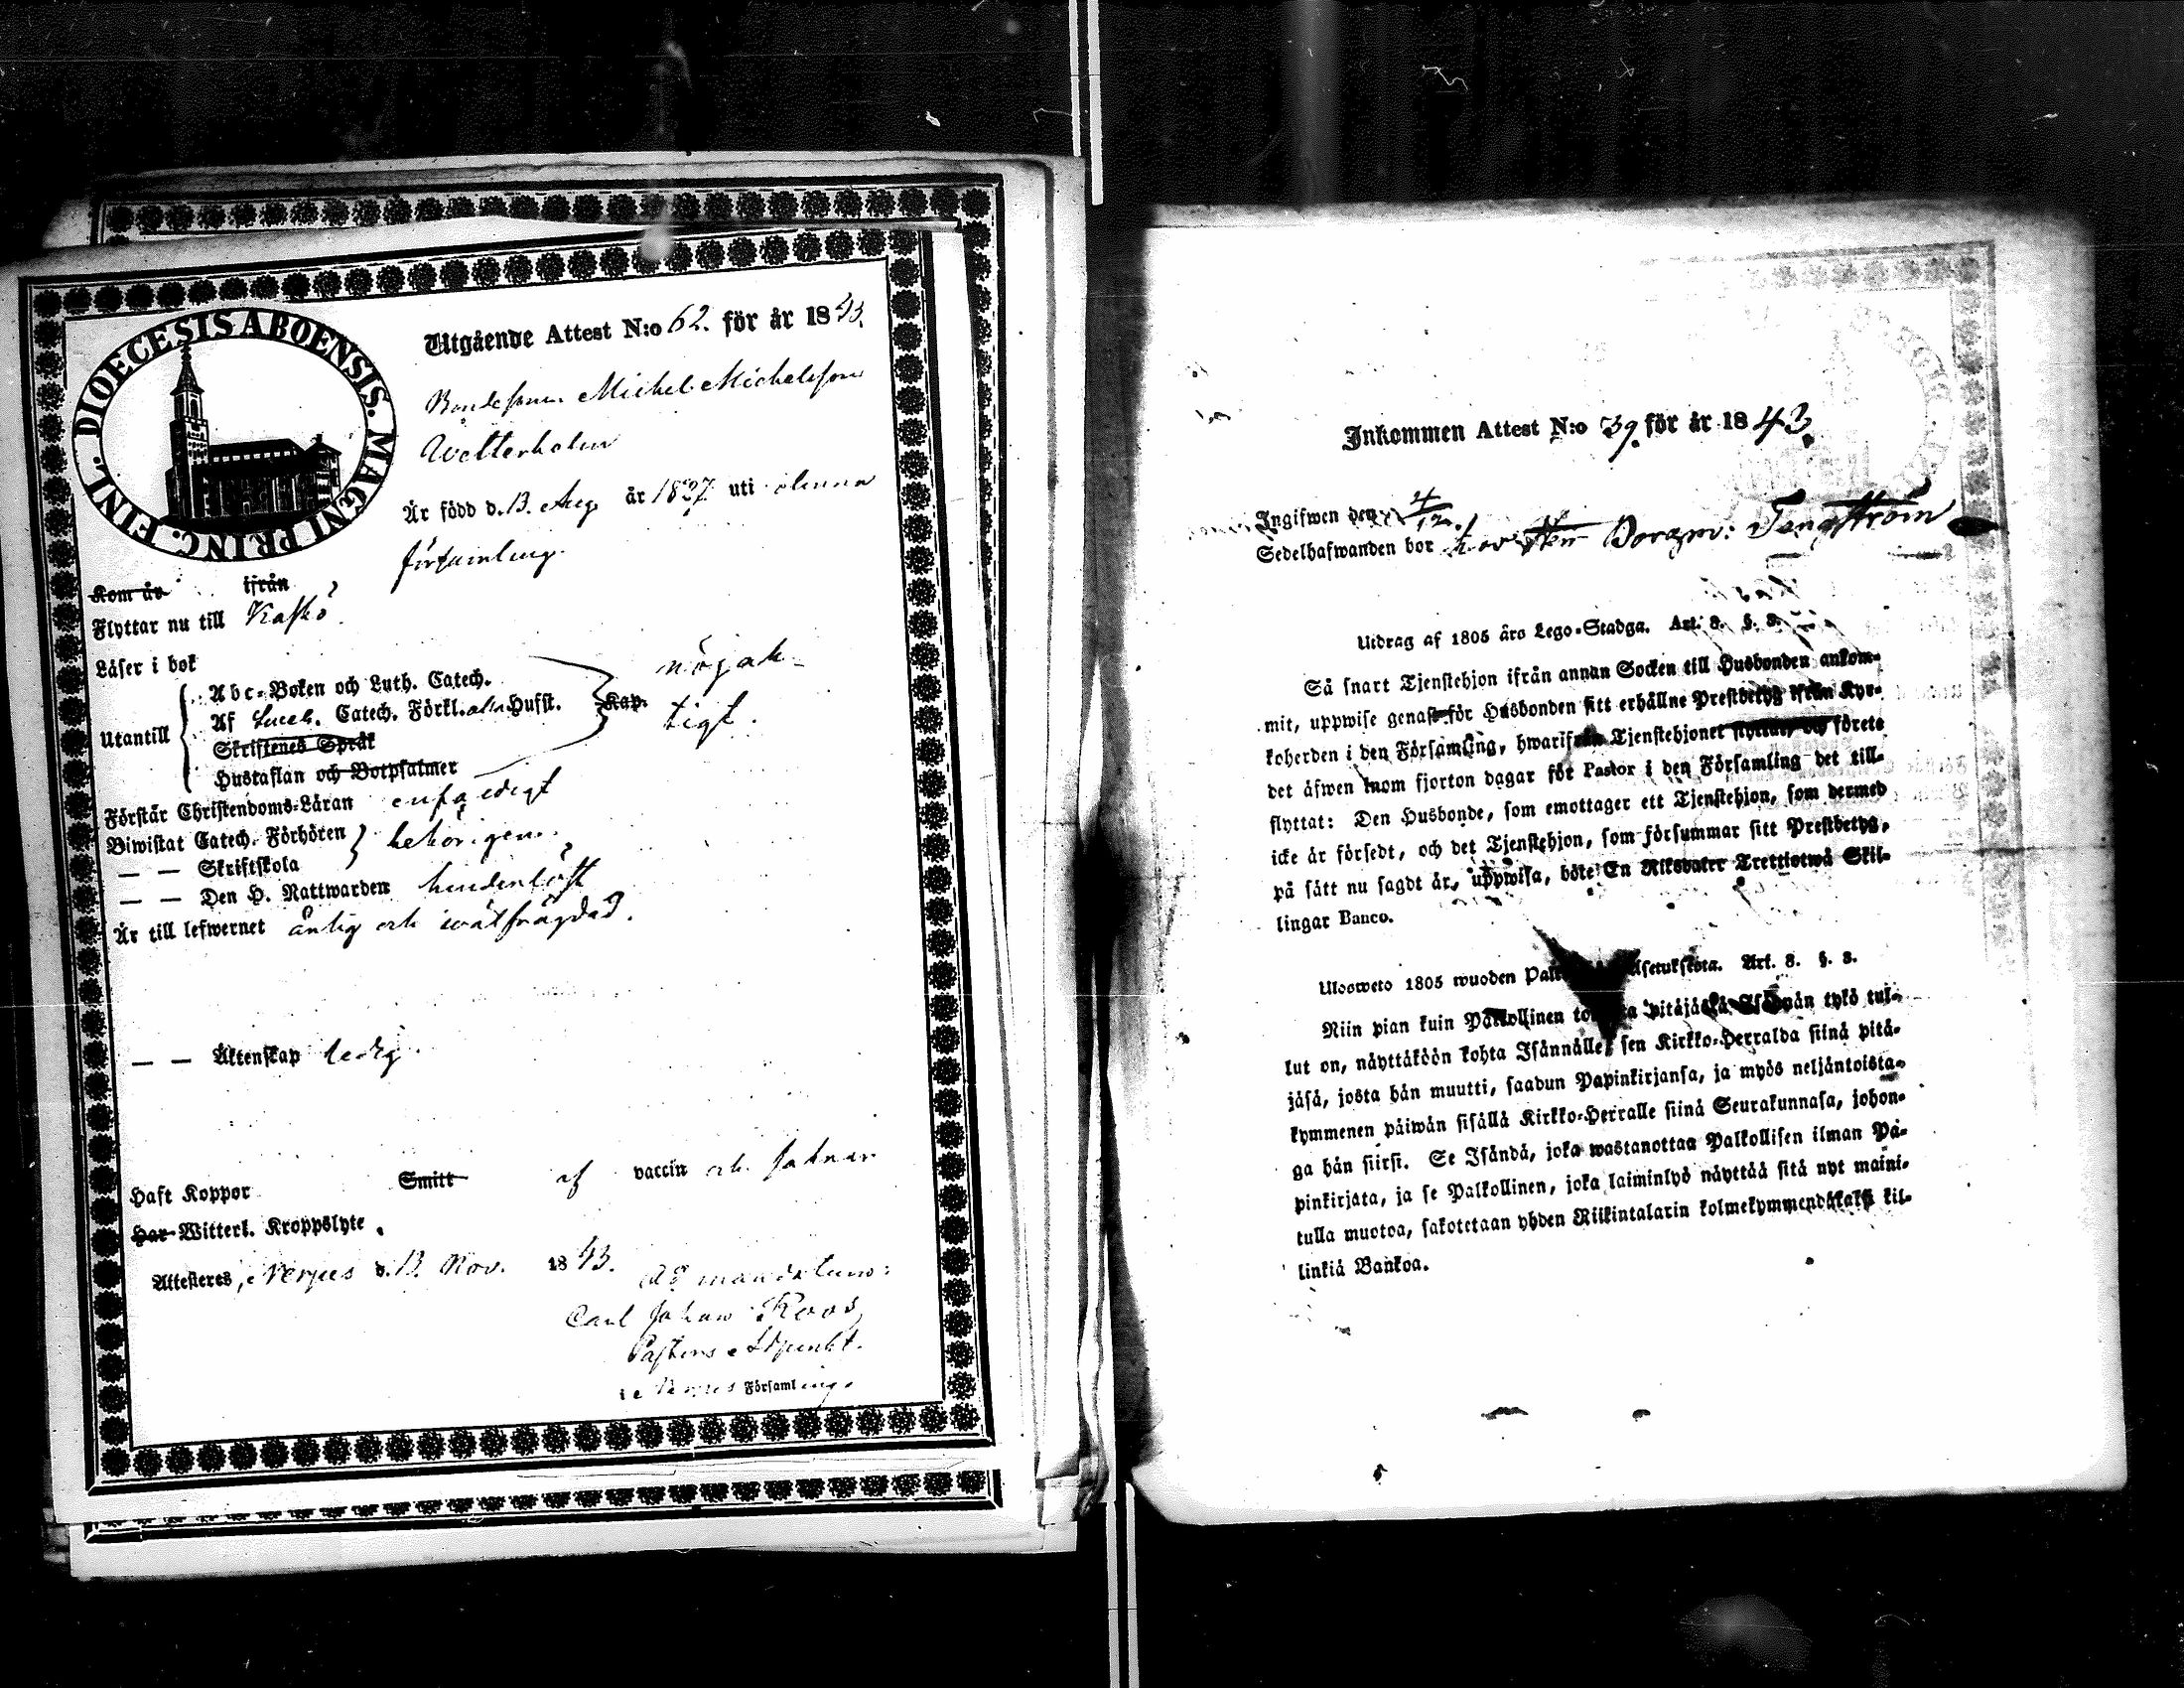 DIOECESIS ABOENSIS. MAGNI PRINC. FINL.
Utgående Attest N:o 62. för år 1843.
Bondesonen Michel Michelsson
Wetterholm
Är född d. 13. Aug. år 1827 uti denna
församling.
Kom år ifrån
Flyttar nu till Kaskö
Läser i bok
Utantill
Abc-Boken och Luth. Catech.
Af Catech. Förkl. Husst. Kap.
Skriftenes Språk
Hustaflan och Botpsalmer
nöjak-
tigt.
Förstår Christendoms-Läran enfaldigt
Biwistat Catech. Förhören
— — Skriftskola
behörigen.
— — Den H. Nattwarden hinderlöst
Är till lefwernet ärlig och wälfrägdad.
— — Äktenskap ledig.
Haft Koppor Smitt af vaccin och saknar
Har Witterl. Kroppslyte.
Attesteras, Nerpes d. 13. Nov. 1843.
Ad mandatum:
Carl Johan Roos
Pastors Adjunkt.
i Nerpes Församling.
Inkommen Attest N:o 39. för år 1843.
Ingifwen den 4/12.
Sedelhafwanden bor hos Herr Borgm: Tengström
Utdrag af 1805 års Lego-Stadga. Art. 8. §. 8.
Så snart Tjenstehjon ifrån annan Socken till Husbonden ankom-
mit, uppwise genast för Husbonden sitt erhållne Prestbetyg ifrån Kyr-
koherden i den Församling, hwarifrån Tjenstehjonet flyttat, och förete
det äfwen inom fjorton dagar för Pastor i den Församling det till-
flyttat: Den Husbonde, som emottager ett Tjenstehjon, som dermed
icke är försedt, och det Tjenstehjon, som försummar sitt Prestbetyg,
på sätt nu sagdt är, uppwisa, böte En Riksdaler Trettiotwå Skil-
lingar Banco.
Ulosweto 1805 wuoden Art. 8. §. 8.
Niin pian kuin Palkollinen pitäjästä Isännän tykö tul-
lut on, näyttäköön kohta Isännälle, sen Kirkko-Herralda siinä pitä-
jäsä, josta hän muutti, saadun Papinkirjansa, ja myös neljäntoista-
kymmenen päiwän sisällä Kirkko-Herralle siinä Seurakunnasa, johon-
ga hän siirsi. Se Isändä, joka wastanottaa Palkollisen ilman Pa-
pinkirjata, ja se Palkollinen, joka laiminlyö näyttää sitä nyt maini-
tulla muotoa, sakotetaan yhden Riikintalarin kolmekymmendäkaksi kil-
linkiä Bankoa.